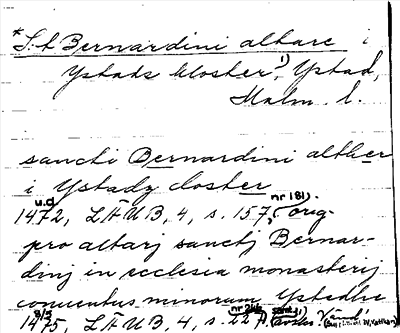 *S:t Bernardini altare i
Ystads kloster,¹) Ystad,
Malm. l.
sancti Bernardini alther
i Ystadz closter
u.d. nr 181)
1472, LÄUB, 4, s. 157, (orig.
pro altarj sanctj Bernar-
dinj in ecclesia monasterij
conuentus minorum Ystadhe
8/5 nr 246
1475, LÄUB, 4, s. 221